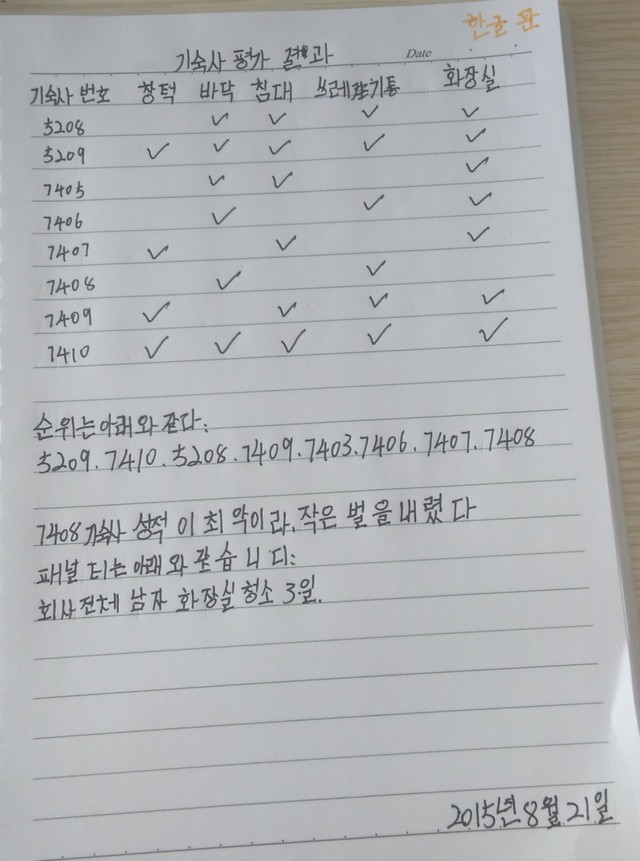 한글 판
기숙사 평가 결과 Date
기숙사 번호 창턱 바닥 침대 쓰레기통 화장실
5208 ✓ ✓ ✓ ✓
5209 ✓ ✓ ✓ ✓ ✓
7405 ✓ ✓ ✓
7406 ✓ ✓ ✓
7407 ✓ ✓ ✓
7408 ✓ ✓
7409 ✓ ✓ ✓ ✓
7410 ✓ ✓ ✓ ✓ ✓
순위는아래와같다:
5209.7410.5208.7409.7403.7406.7407.7408
7408기숙사 성적이 최악이라, 작은 벌을 내렸다
패널티는아래와 같습니디:
회사전체 남자 화장실청소 3일.
2015년8월21일